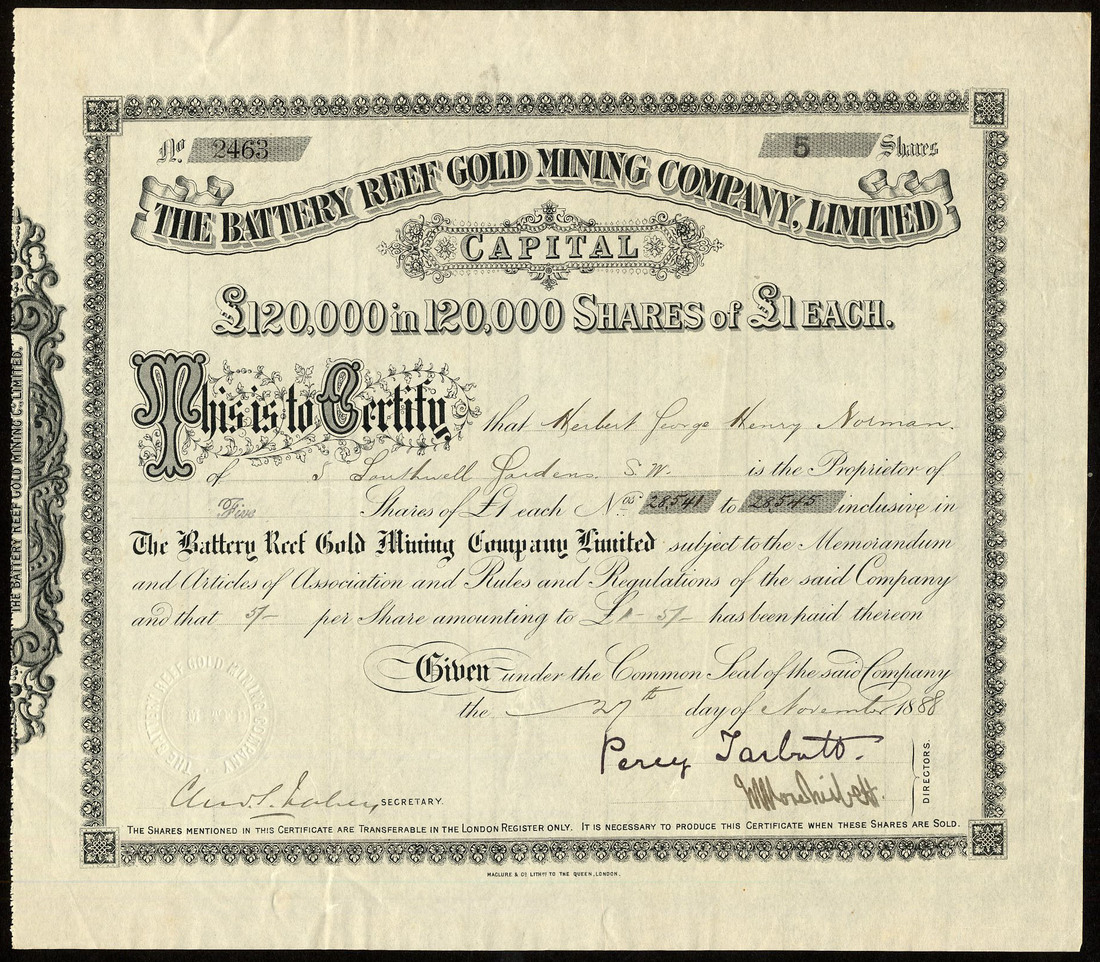 Nº 2463
5 Shares
THE BATTERY REEF GOLD MINING COMPANY, LIMITED
CAPITAL
£120,000 in 120,000 SHARES of £1 EACH.
This is to Certify that Herbert George Henry Norman.
of 5 Southwell Gardens. S.W. is the Proprietor of
Five Shares of £1 each Nos 28,541 to 28,545 inclusive in
The Battery Reef Gold Mining Company Limited subject to the Memorandum
and Articles of Association and Rules and Regulations of the said Company
and that 5/- per Share amounting to £1-5/- has been paid thereon
Given under the Common Seal of the said Company
the 27th day of November 1888
Percy Tarbutt.
DIRECTORS.
SECRETARY.
THE SHARES MENTIONED IN THIS CERTIFICATE ARE TRANSFERABLE IN THE LONDON REGISTER ONLY. IT IS NECESSARY TO PRODUCE THIS CERTIFICATE WHEN THESE SHARES ARE SOLD.
MACLURE & Co LITHrs TO THE QUEEN, LONDON.
THE BATTERY REEF GOLD MINING Co, LIMITED.
THE BATTERY REEF GOLD MINING COMPANY